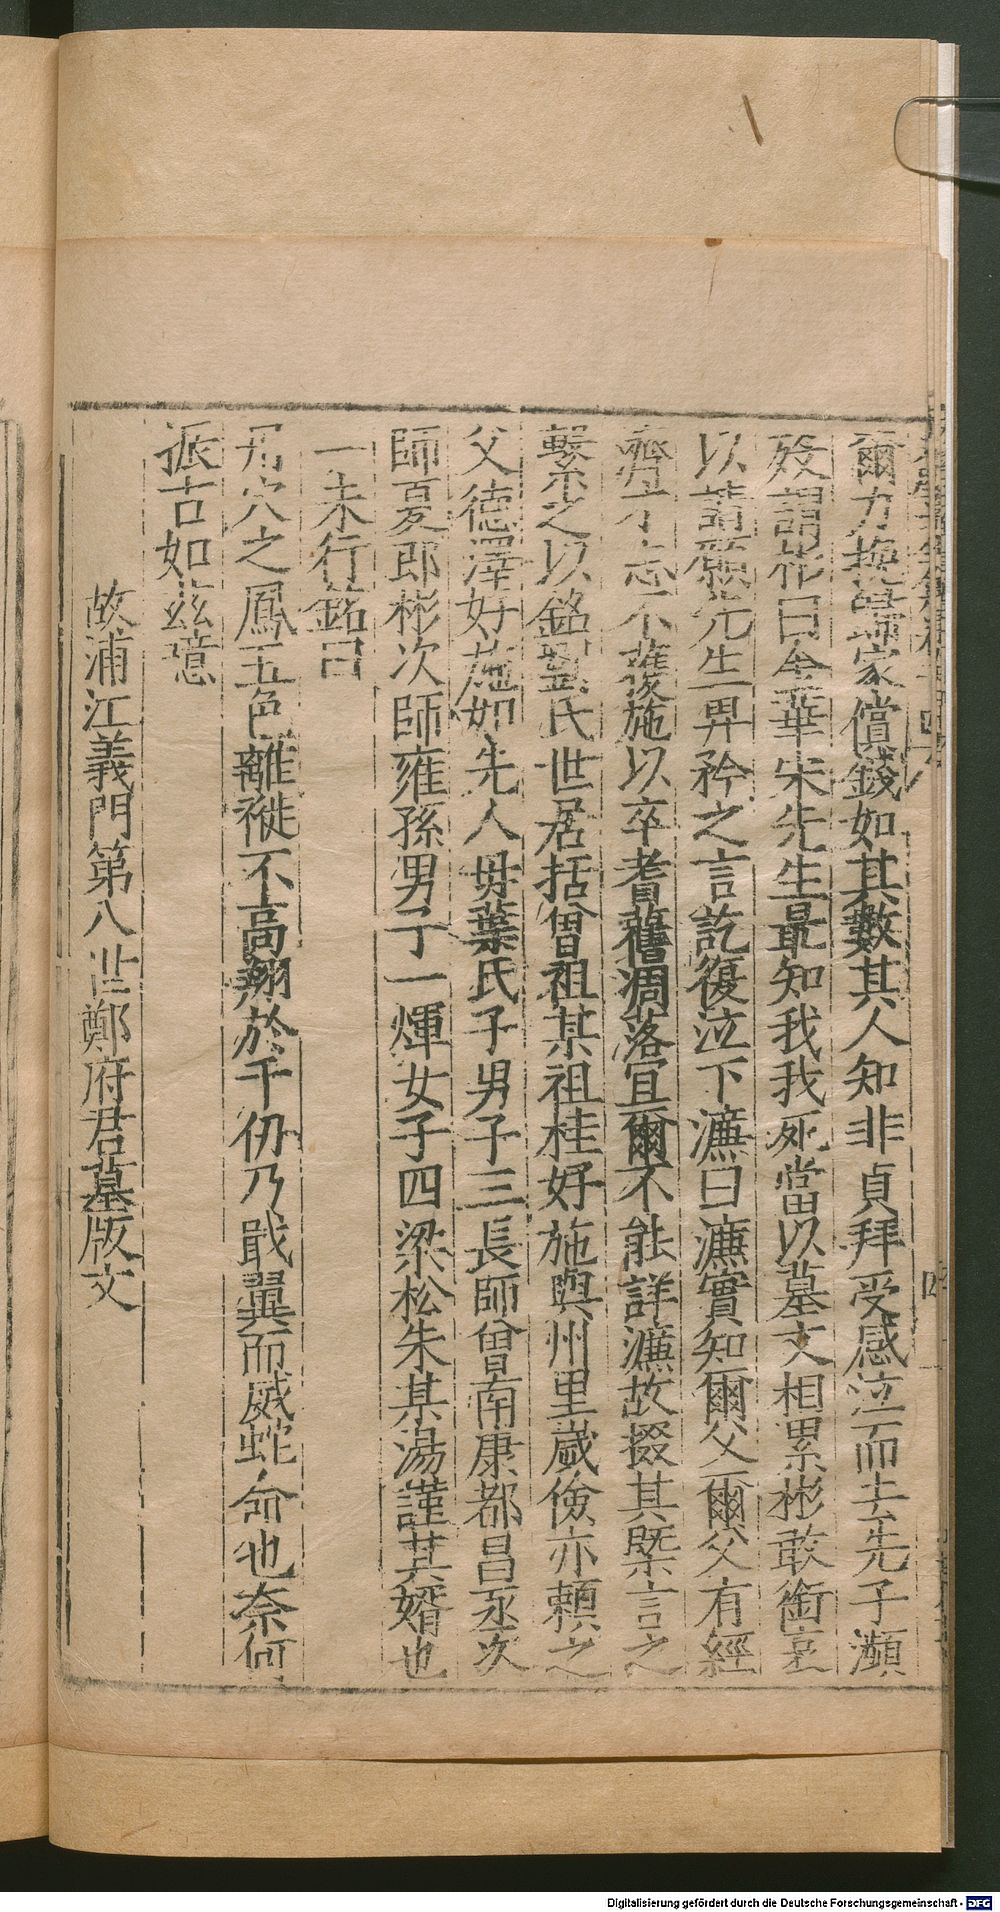 爾力換還家償錢如其數其人知非貞拜受感泣而去先子瀕
歿謂彬曰金華宋先生最知我我死當以墓文相累彬敢銜哀
以請願先生畀矜之言訖復泣下濂曰濂實知爾父爾父有經
濟才志不獲施以卒耆舊凋落宜爾不能詳濂故掇其槩言之
繫之以銘劉氏世居括曾祖某祖桂好施與州里歲儉亦賴之
父德澤好施如先人毋葉氏子男子三長師曾南康都昌丞次
師夏郎彬次師雍孫男丁一煇女子四梁松朱某湯謹其婿也
一未行銘曰
丹穴之鳳五色離褷不高翔於千仞乃戢翼而威蛇命也奈何
振古如茲噫
故浦江義門第八世鄭府君墓版文
Digitalisierung gefördert durch die Deutsche Forschungsgemeinschaft - DFG